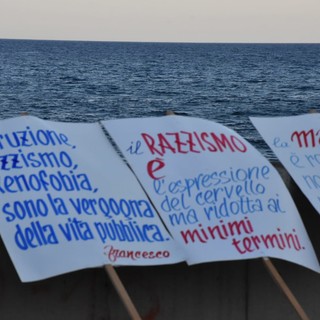 ruzione,
zzismo,
enofobia,
sono la vergogna
della vita pubblica.
Francesco
il RAZZISMO
È
l'espressione
del cervello
ma ridotta ai
minimi
termini.
la
è